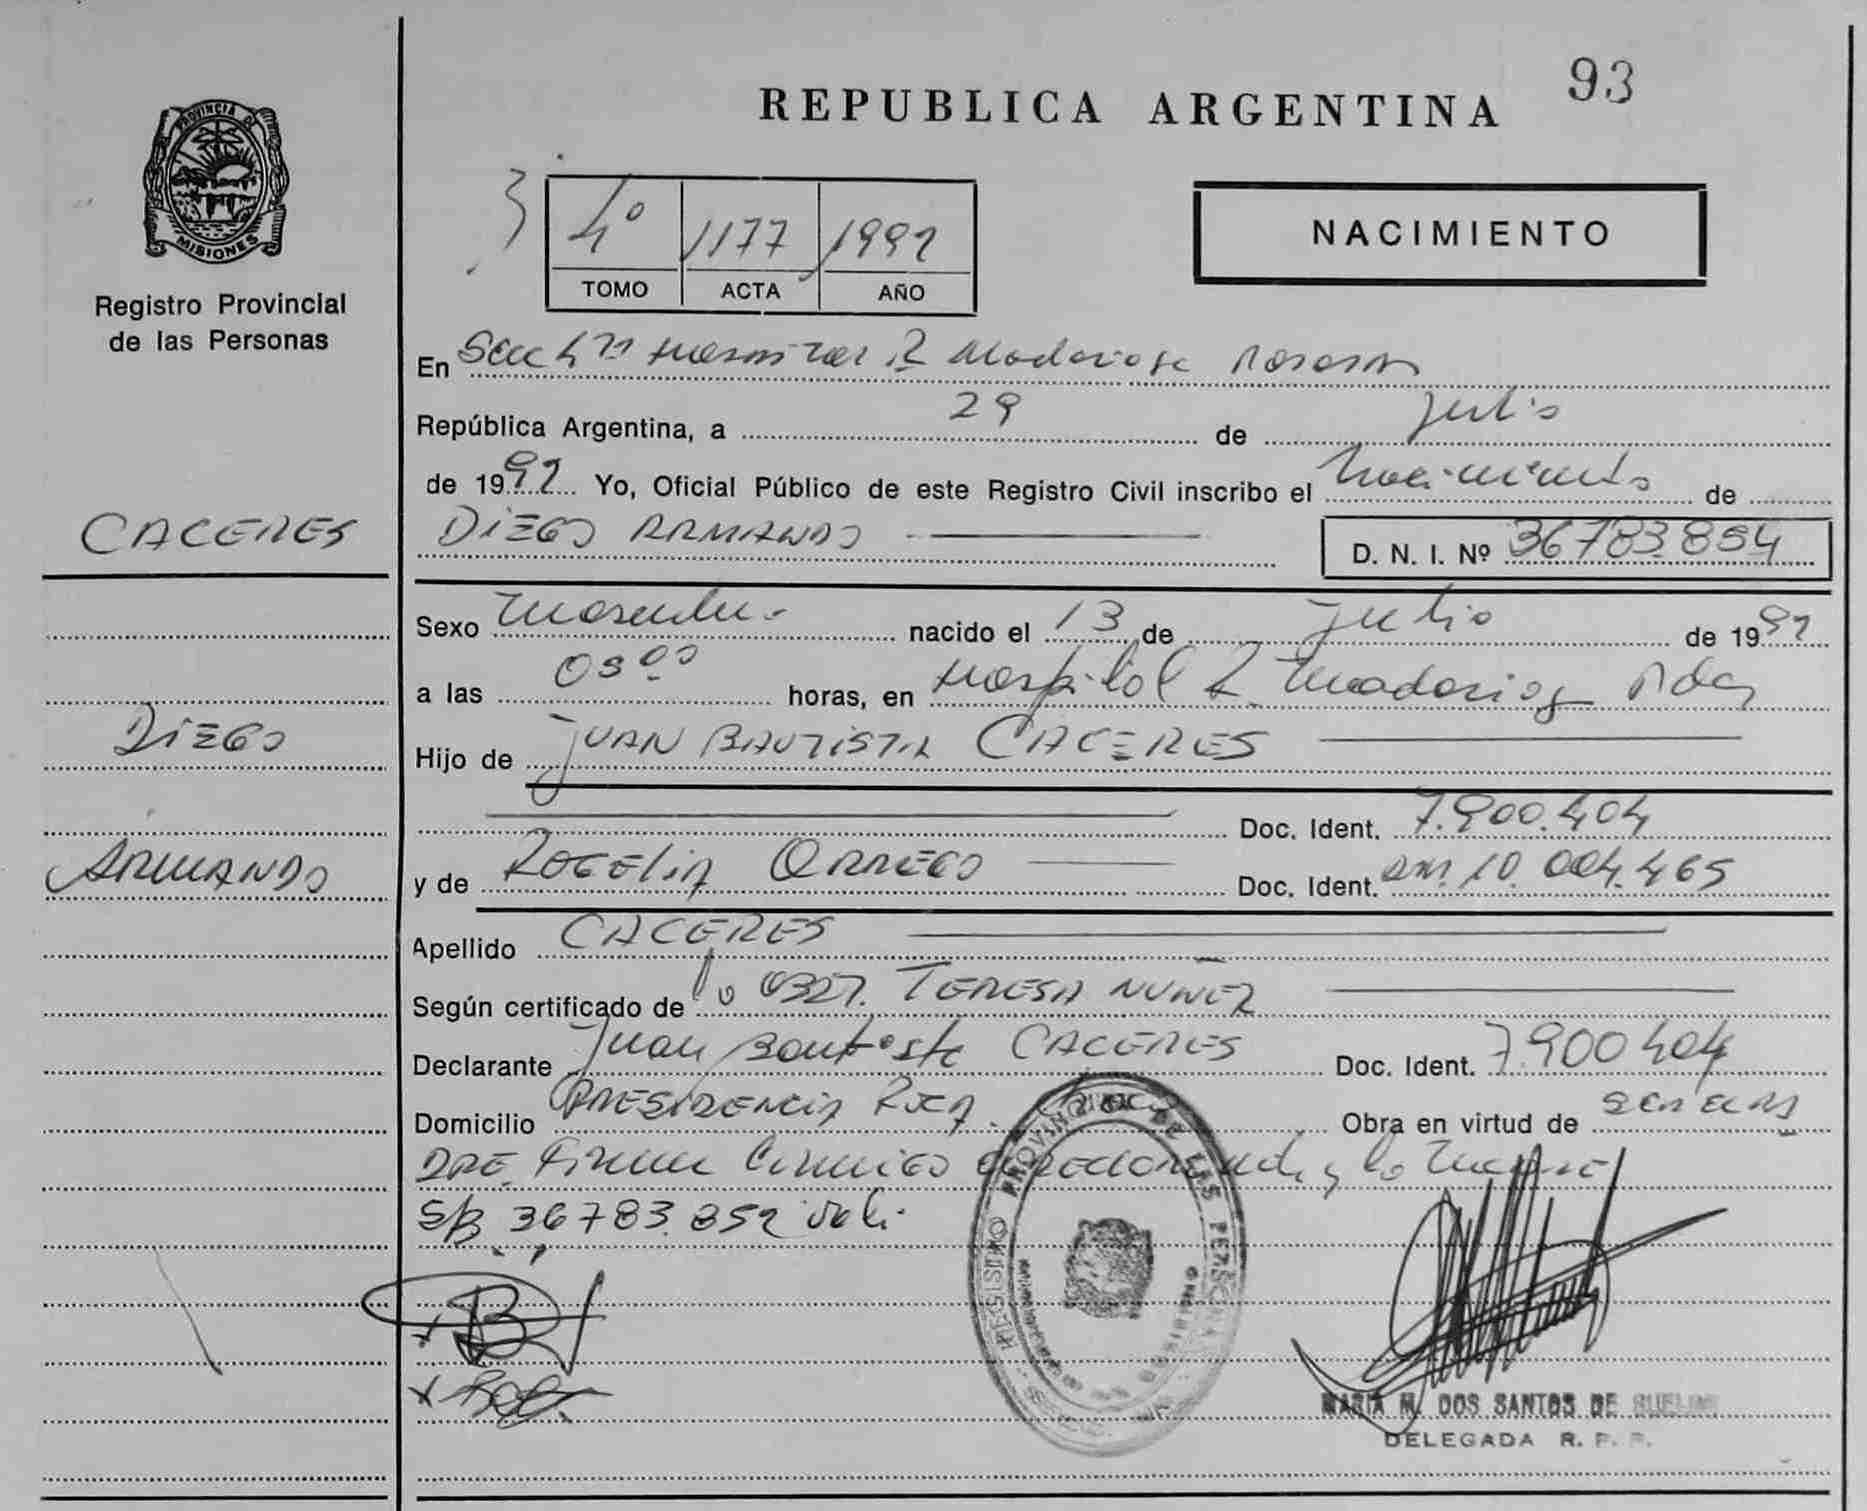 93
REPUBLICA ARGENTINA
PROVINCIA D MISIONES
Registro Provincial
de las Personas
4º 1177 1992
TOMO ACTA AÑO
NACIMIENTO
En Secc 4ta R Madariaga
República Argentina, a 29 de julio
de 1992 Yo, Oficial Público de este Registro Civil inscribo el nacimiento de
CACERES
DIEGO ARMANDO
D. N. I. Nº 36783.854
Sexo Masculino nacido el 13 de julio de 1992
a las 03 00 horas, en Hospital R Madariaga Pdas
DIEGO
Hijo de JUAN BAUTISTA CACERES
Doc. Ident. 7.900.404
ARMANDO
y de ROGELIA ORREGO Doc. Ident. 10.004.465
Apellido CACERES
Según certificado de la TERESA NUÑEZ
Declarante Juan Bautista CACERES Doc. Ident. 7.900404
Domicilio PRESIDENCIA ROCA Obra en virtud de
Firma Conmigo la madre
S/B 36783.852
REGISTRO PROVINCIAL DE LAS PERSONAS
MARIA M. DOS SANTOS DE
DELEGADA R. P. P.